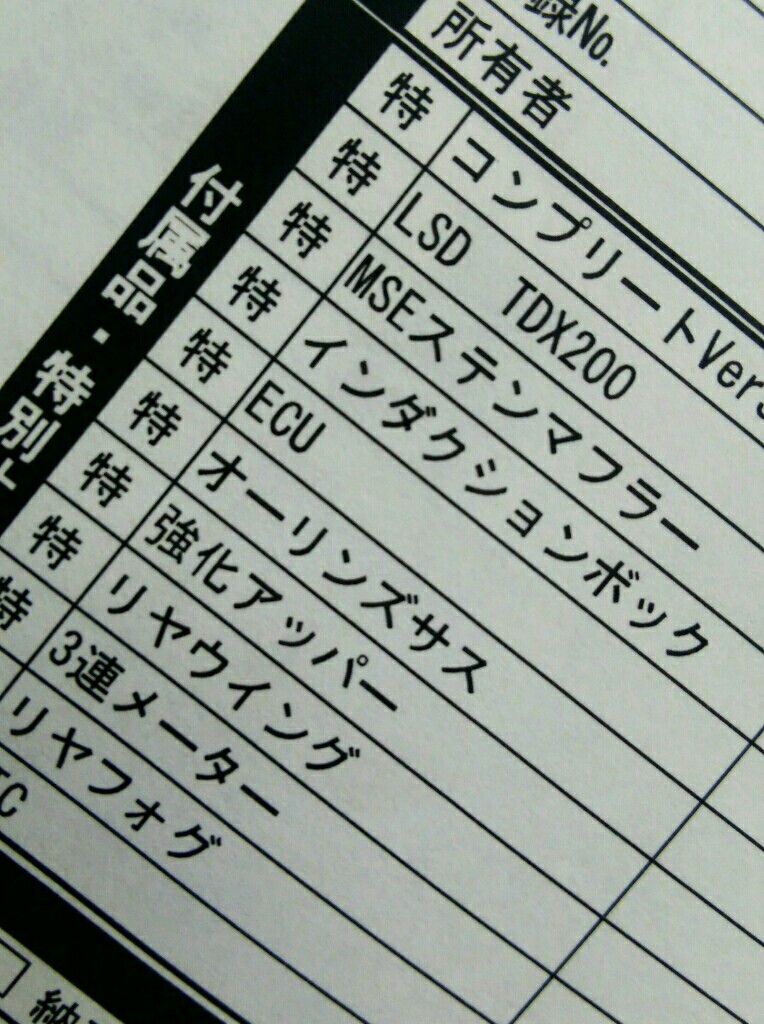 録No.
所有者
付属品・特別
特 コンプリートVer
特 LSD TDX200
特 MSEステンマフラー
特 インダクションボック
特 ECU
特 オーリンズサス
特 強化アッパー
特 リヤウイング
特 3連メーター
リヤフォグ
TC
□ 納